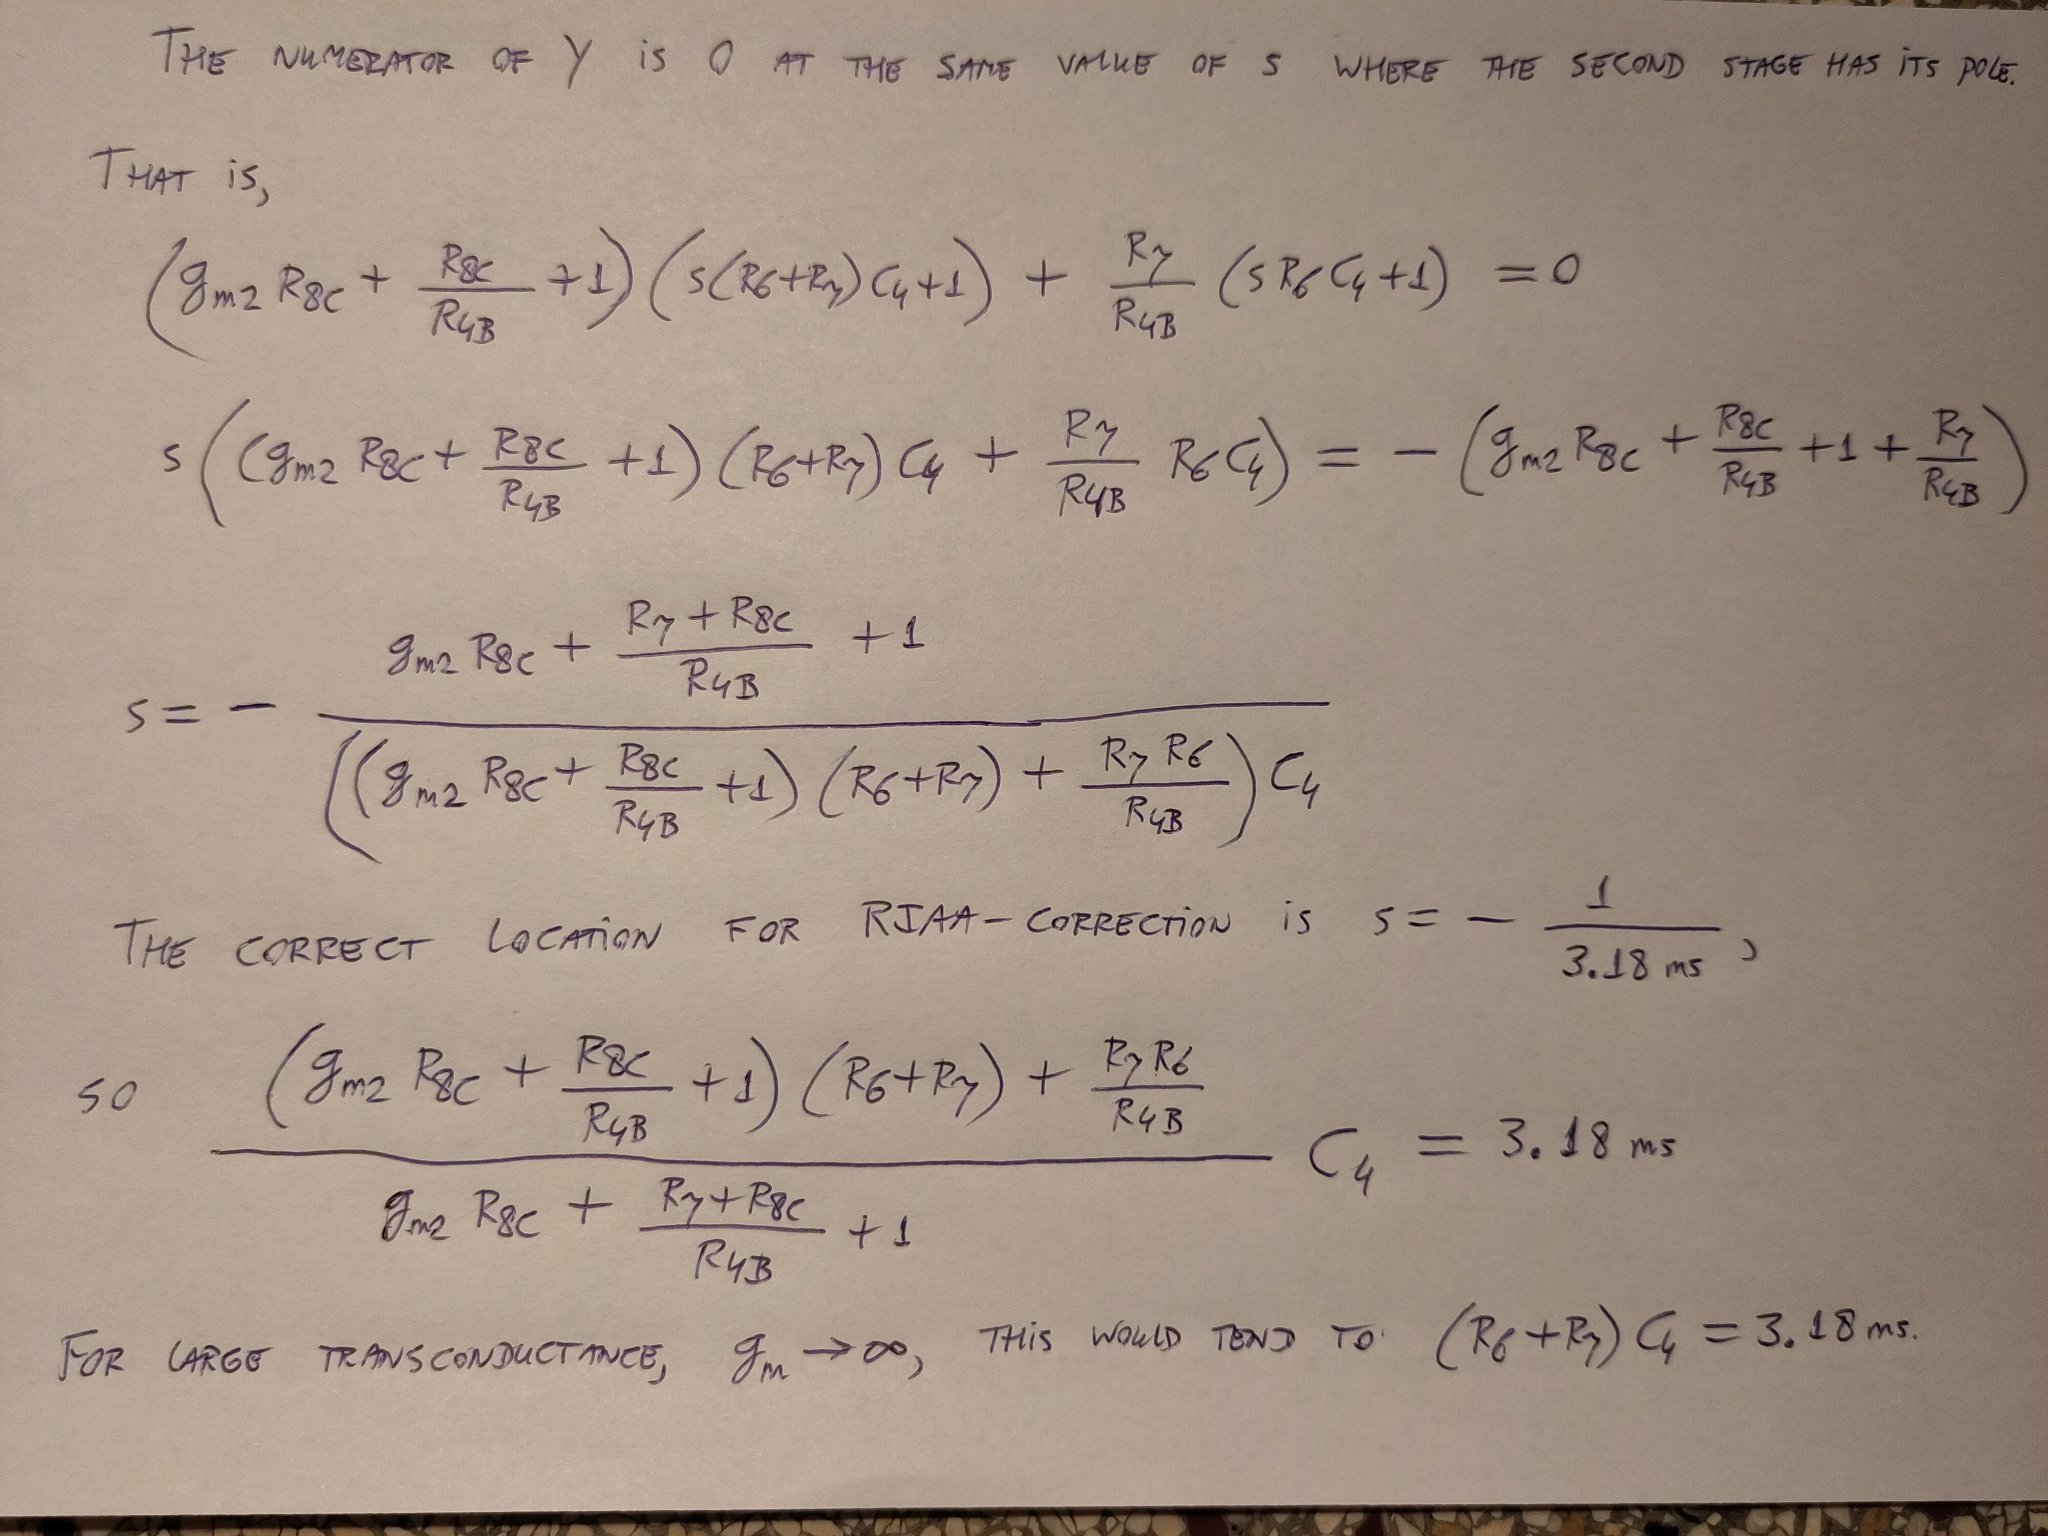 THE NUMERATOR OF Y is 0 AT THE SAME VALUE OF s WHERE THE SECOND STAGE HAS iTS POLE.
THAT is,
(g_m2 R_8C + R_8C/R_4B + 1) (s(R_6+R_7) C_4 + 1) + R_7/R_4B (s R_6 C_4 + 1) = 0
s((g_m2 R_8C + R_8C/R_4B + 1) (R_6+R_7) C_4 + R_7/R_4B R_6 C_4) = - (g_m2 R_8C + R_8C/R_4B + 1 + R_7/R_4B)
s = - (g_m2 R_8C + (R_7 + R_8C)/R_4B + 1) / (((g_m2 R_8C + R_8C/R_4B + 1) (R_6+R_7) + R_7 R_6/R_4B) C_4)
THE CORRECT LOCATiON FOR RIAA-CORRECTiON is s = - 1/3.18 ms,
so ((g_m2 R_8C + R_8C/R_4B + 1) (R_6+R_7) + R_7 R_6/R_4B) / (g_m2 R_8C + (R_7+R_8C)/R_4B + 1) C_4 = 3.18 ms
FOR LARGE TRANSCONDUCTANCE, g_m → ∞, THiS WOULD TEND TO (R_6+R_7) C_4 = 3.18 ms.